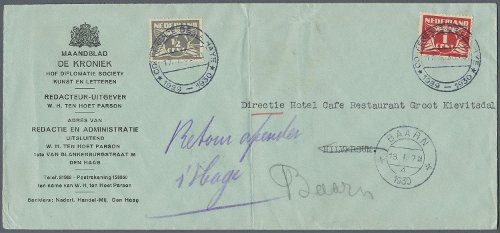 MAANDBLAD
DE KRONIEK
HOF DIPLOMATIE SOCIETY
KUNST EN LETTEREN
REDACTEUR-UITGEVER
W. H. TEN HOET PARSON
ADRES VAN
REDACTIE EN ADMINISTRATIE
UITSLUITEND
W. H. TEN HOET PARSON
1ste VAN BLANKENBURGSTRAAT
DEN HAAG
ten name van W. H. ten Hoet Parson
Bankiers: Nederl. Handel-Mij. Den Haag
NEDERLAND
½
CENT
1929 - 1930
NEDERLAND
1
CENT
1929 - 1930
Directie Hotel Cafe Restaurant Groot Kievitsdal
HILVERSUM
Retour afzender
s'Hage
Baarn
BAARN
1930